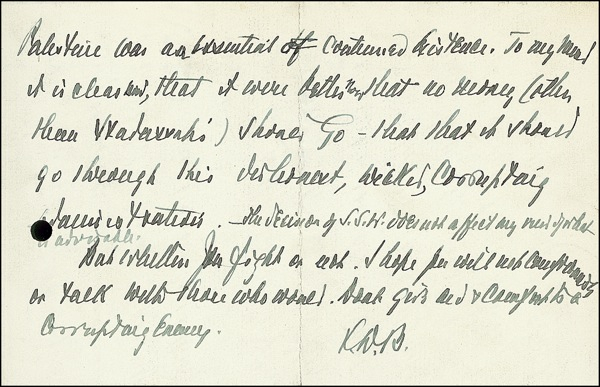 Palestine was an essential of continued existence. To my mind
it is clear now, that it were better that no money (other
than Skadavski's) should go – than that it should
go through this dishonest, wicked, corrupting
administration. – the decision of S.S.W. does not affect my view of what
is advisable.
But whether you fight or not. I hope you will not compromise
or talk with those who would. Dont give aid & comfort to a
corrupting enemy.
K.D.B.